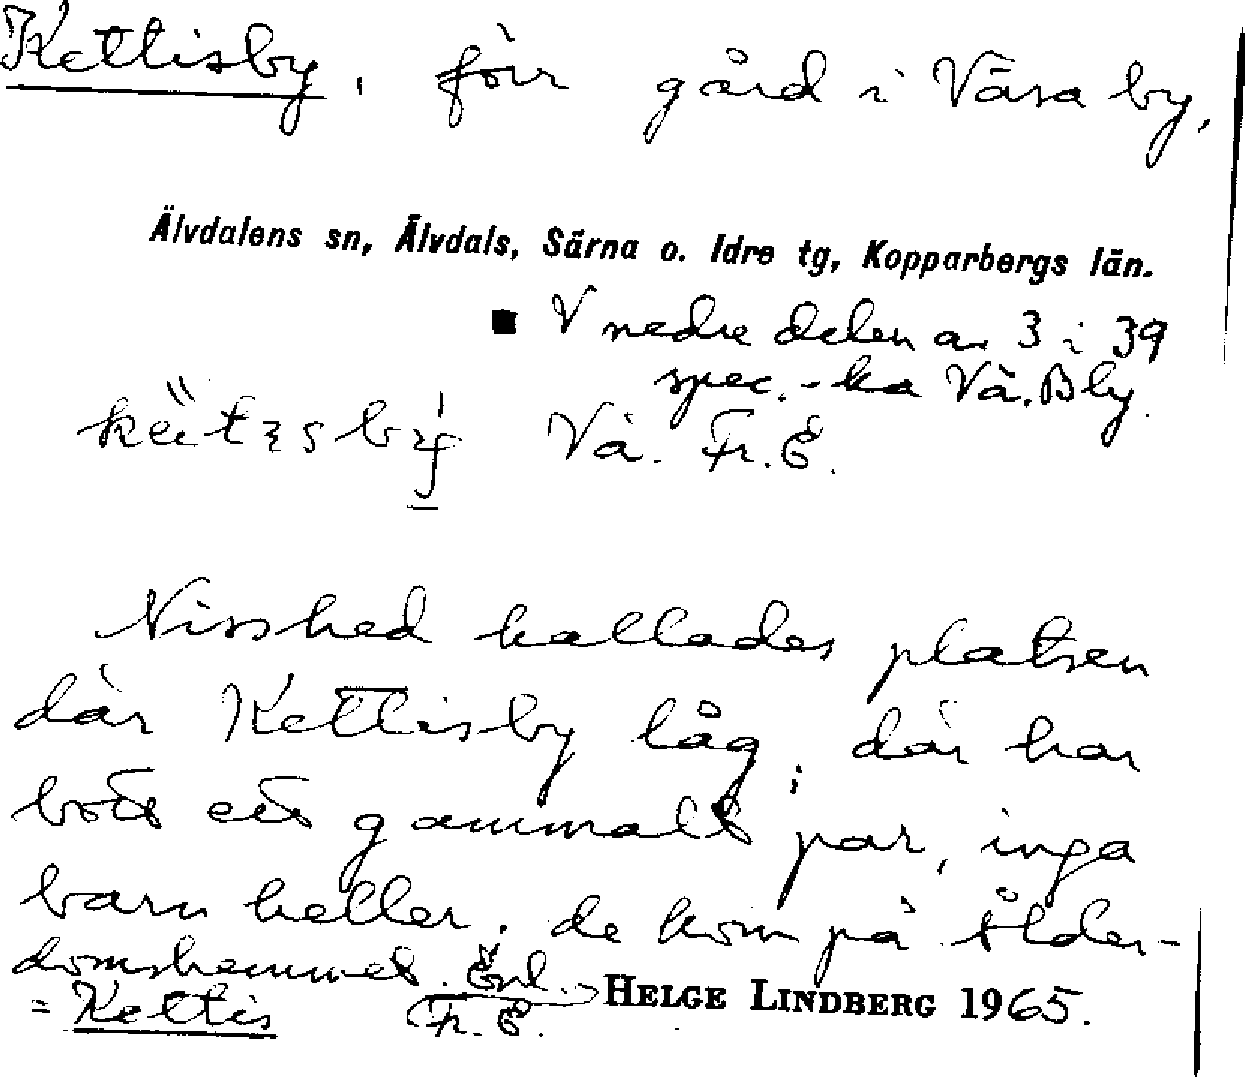 Kettisby, förr gård i Våsa by,
Älvdalens sn, Älvdals, Särna o. Idre tg, Kopparbergs län.
■ V nedre delen av 3 i 39
spec.-ka Vå. Bly.
Vå. Fr. E.
Nisshed kallades platsen
där Kettisby låg, där har
bott ett gammalt par, inga
barn heller. de kom på ålder-
domshemmet. Enl.
Fr. E.
HELGE LINDBERG 1965.
= Kettis